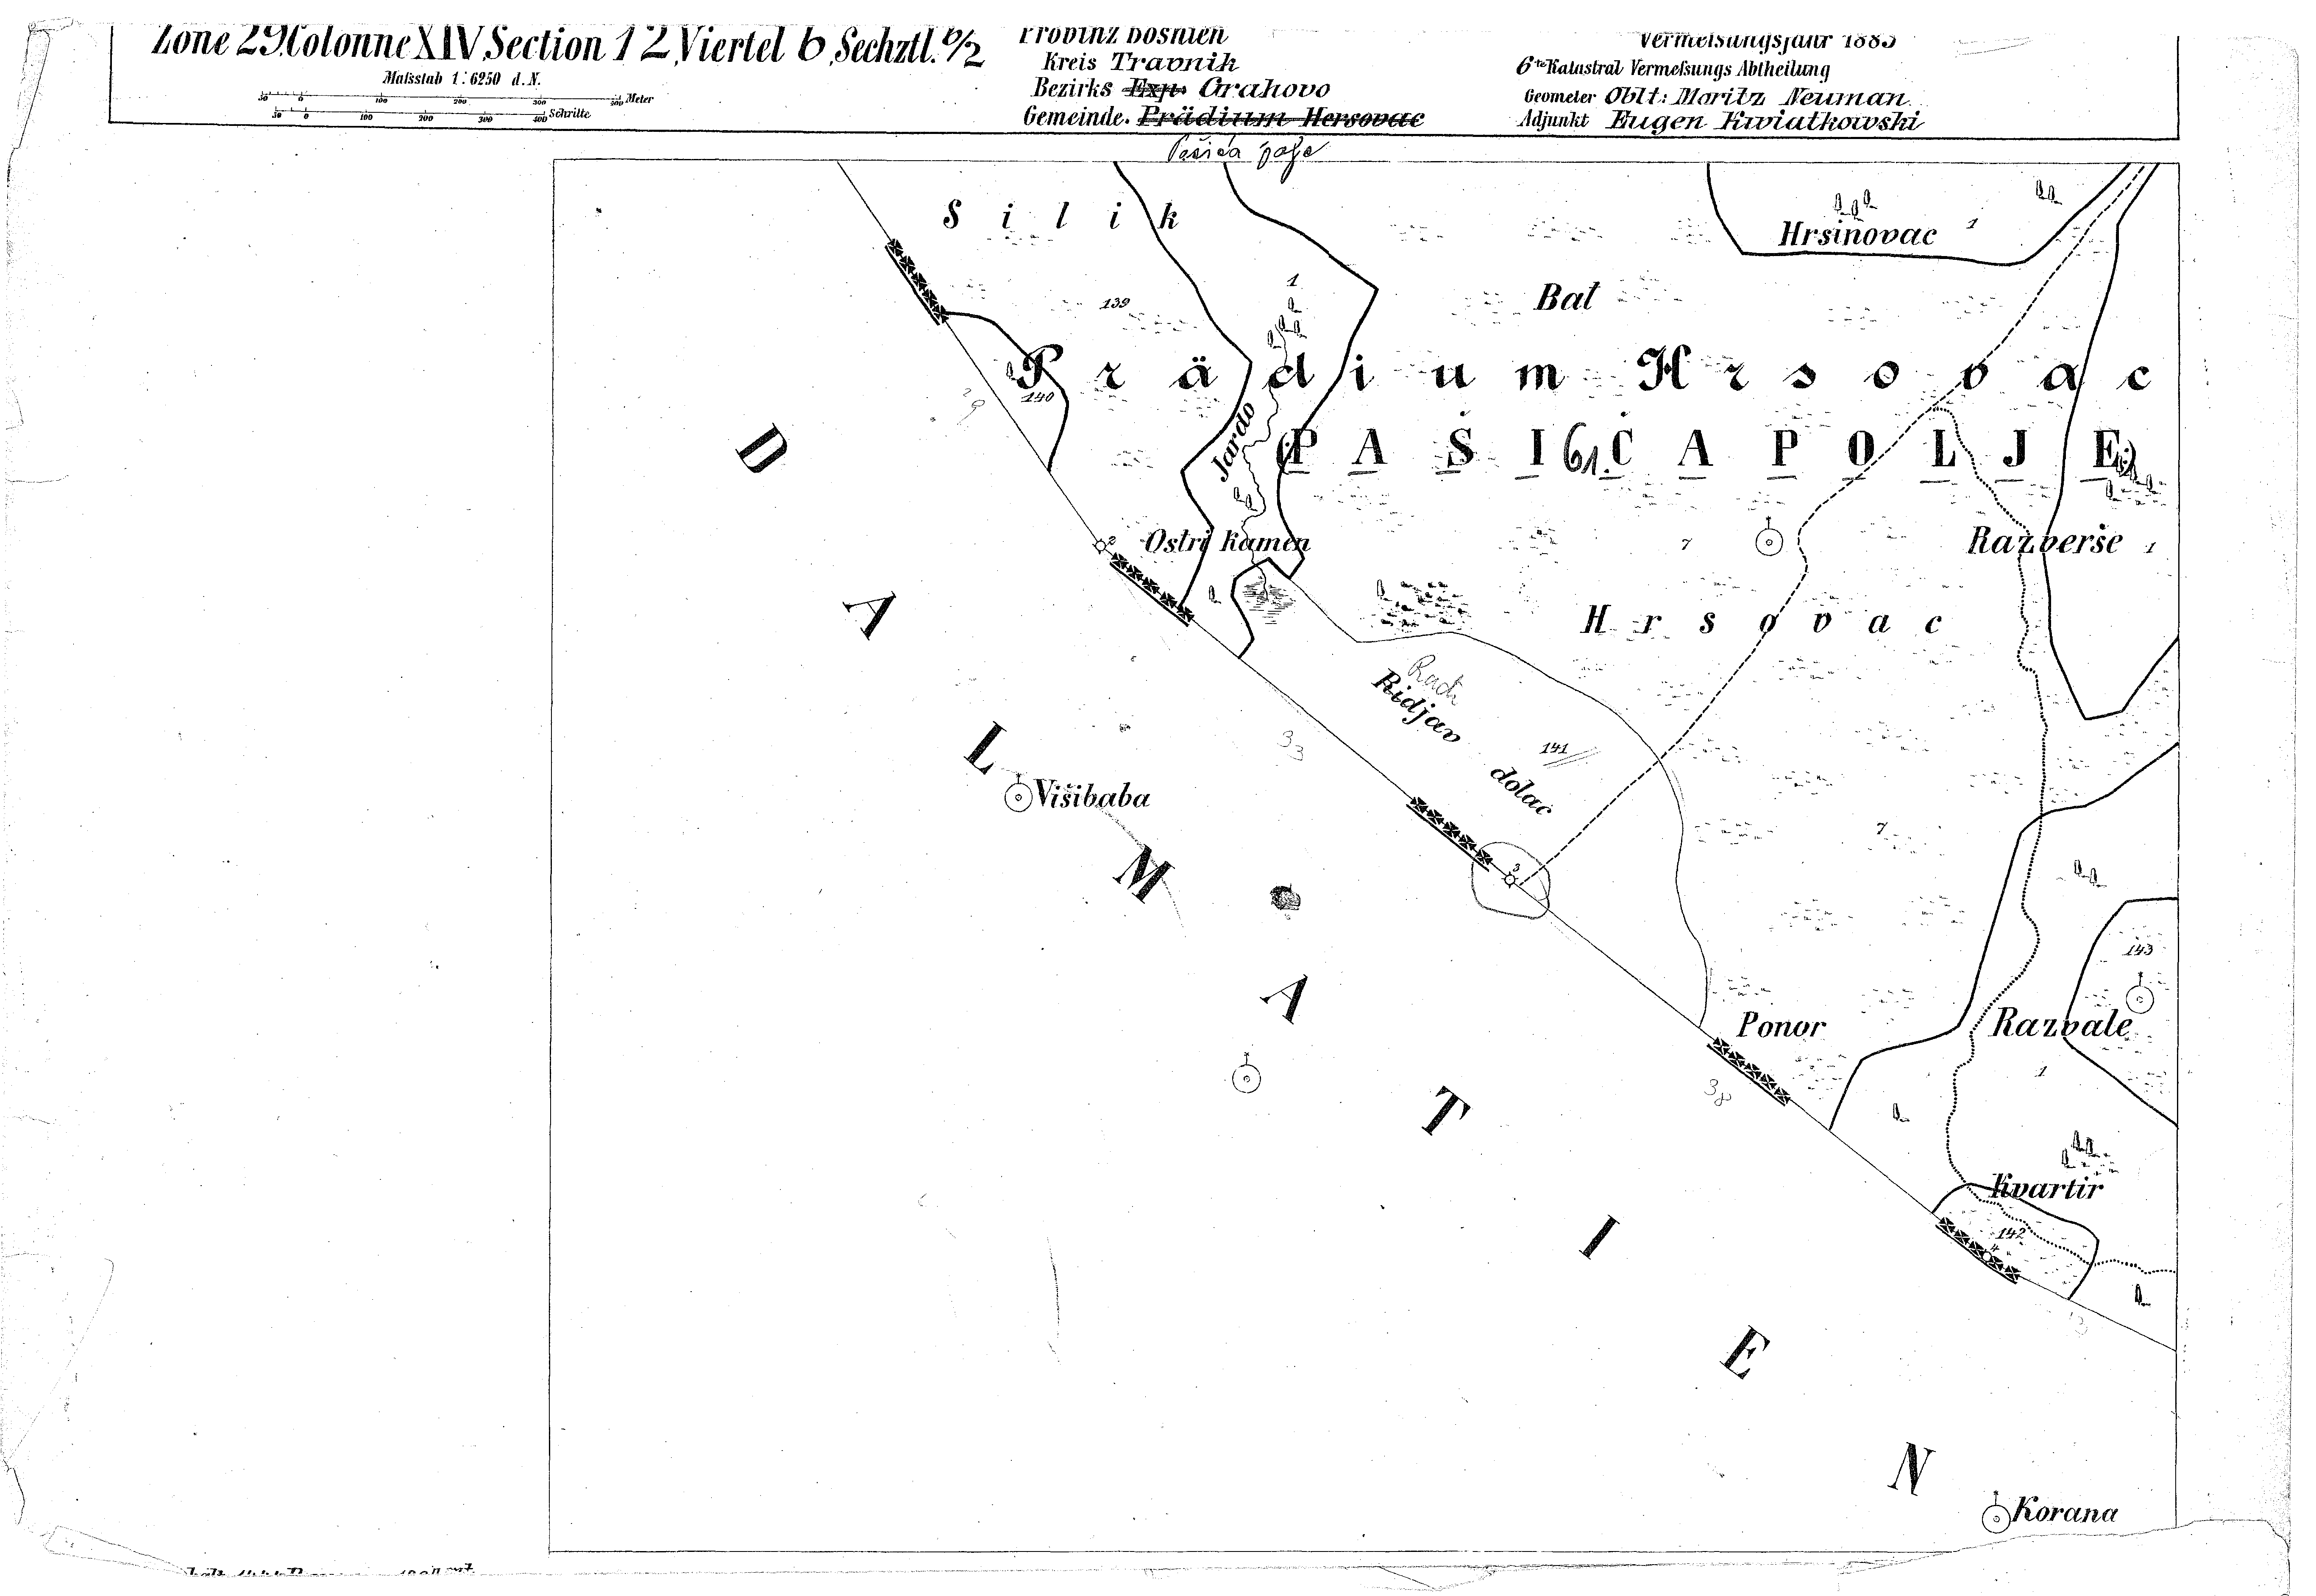 Zone 29. Colonne XIV, Section 12, Viertel 6, Sechztl. b/2
Maßstab 1:6250 d. N.
50 0 100 200 300 Meter
50 0 100 200 300 400 Schritte
Provinz Bosnien
Kreis Travnik
Bezirks Exp: Grahovo
Gemeinde. Prädium Hersovac
Vermeßungsjahr 1885
6te Katastral Vermeßungs Abtheilung
Geometer Oblt: Moritz Neuman
Adjunkt Eugen Kwiatkowski
Silik
Hrsinovac 1
139
1
Bat
Prädium Hrsovac
140
Jardo
(PAŠIĆA POLJE)
61.
2
Ostri kamen
7
Razverše 1
Hrsovac
Ridjav dolac
141
33
Višibaba
7
3
143
Ponor
Razvale
1
38
Kvartir
142
4
DALMATIEN
Korana